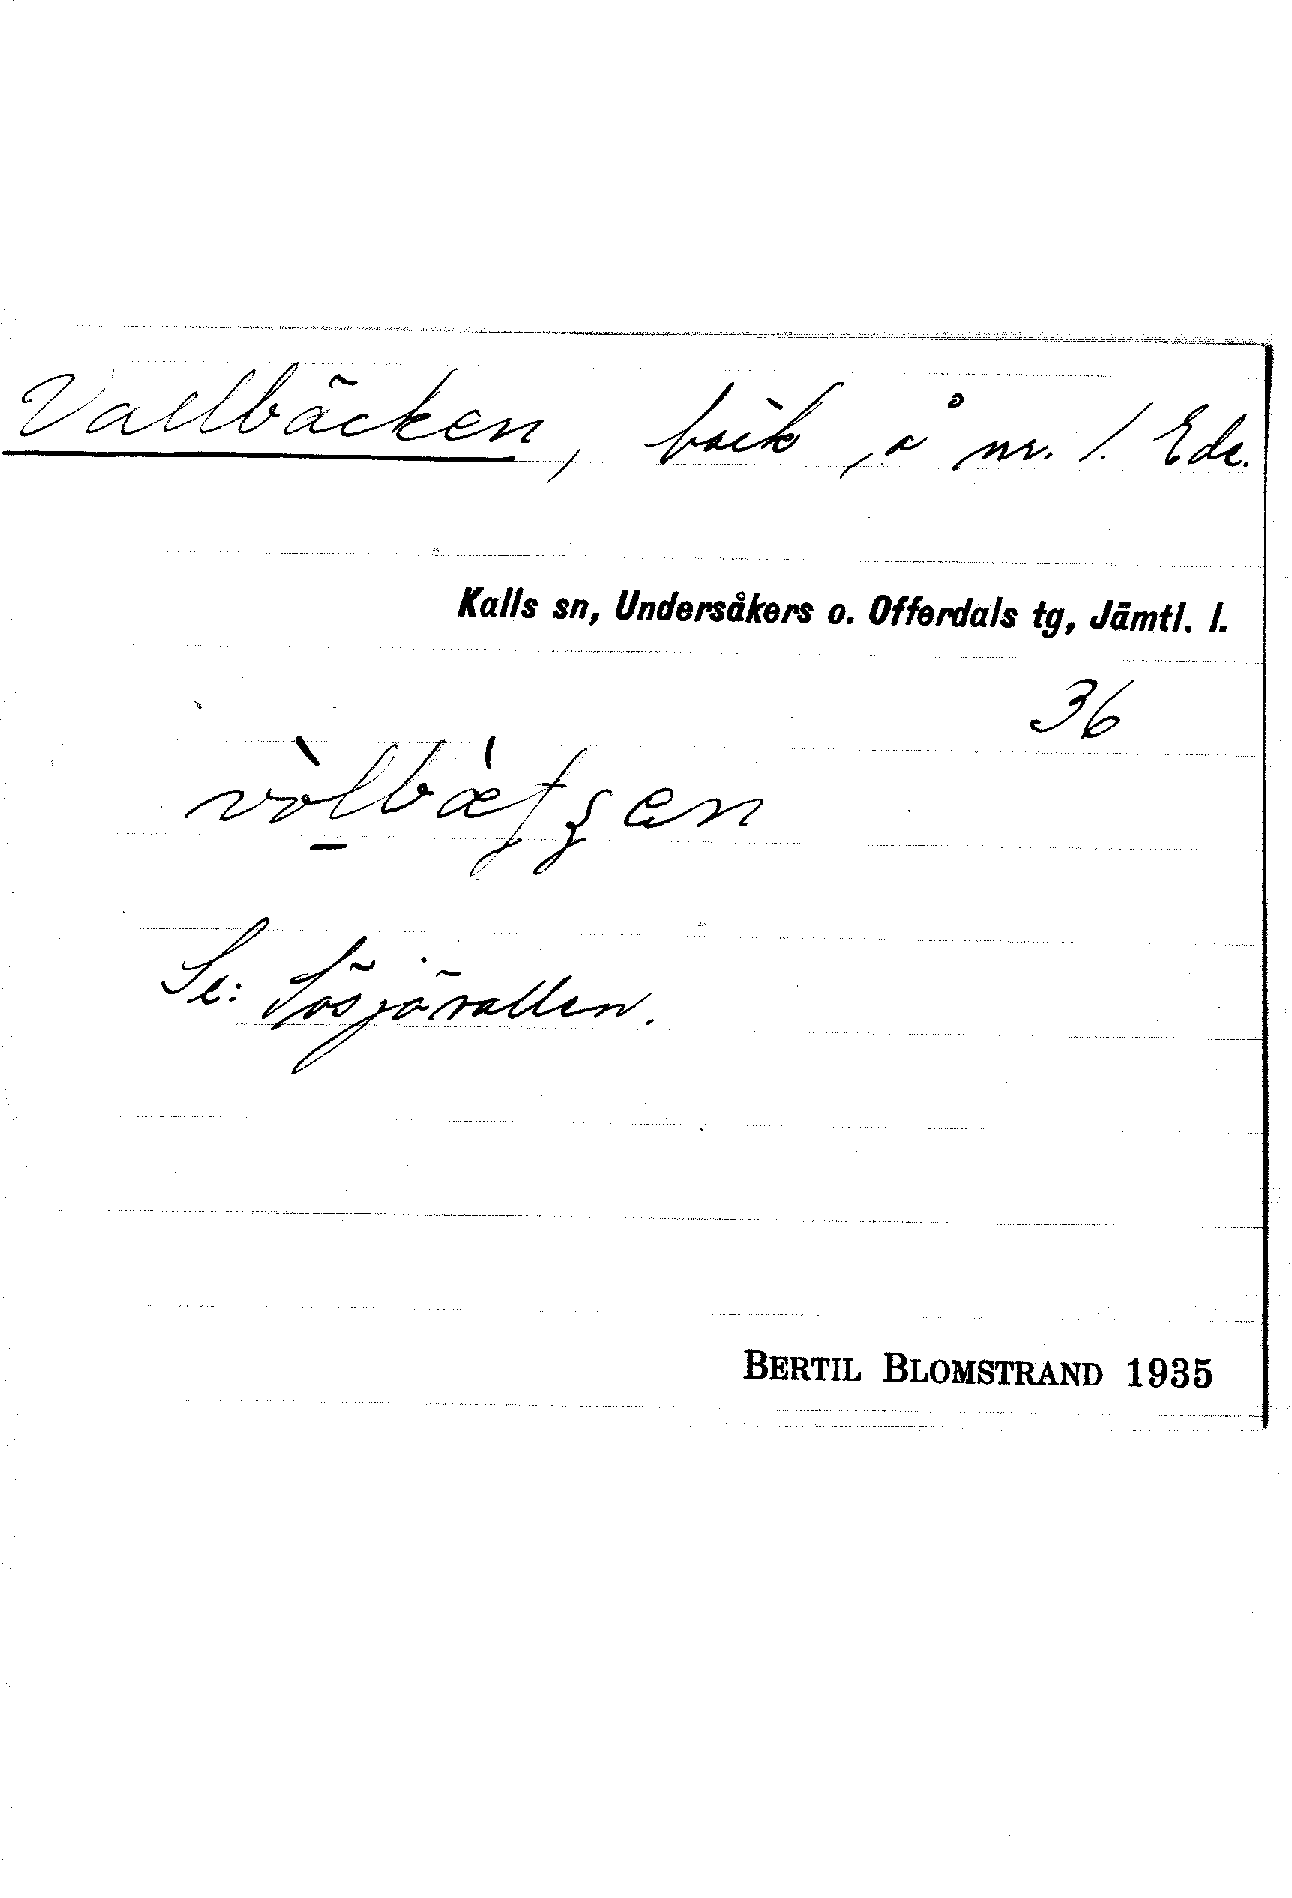 Vallbäcken, bäck, å nr. 1. Ede.
Kalls sn, Undersåkers o. Offerdals tg, Jämtl. l.
36
Se: Sösjövallen.
BERTIL BLOMSTRAND 1935